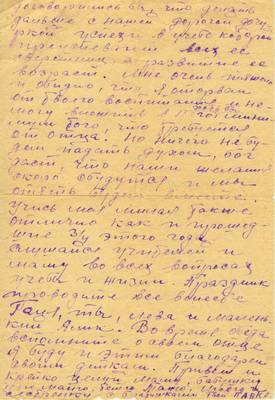 договорились бы, что делать
дальше с нашей дорогой доч
уркой успехи в учебе которой
всех ее
сверстниц а развитие ее
возраст. Мне очень тяжело
и обидно, что я оторван
от твоего воспитания и не
могу вложить в
того что требуется
от отца! Но ничего не бу
дем падать духом, бог
даст, что наши желания
скоро сбудутся и мы
опять будем вместе.
Учись моя милая так же
отлично как и прошед-
шие 3/4 этого года
слушайся учителей и
маму во всех вопросах
учебы и жизни. Праздник
проводите все вместе
ты, Лева и малень
кий Алик. Во время обеда
вспомните о своем отце
а буду и этим благодарен
своим деткам. Привет и
крепко целуй маму, бабушку
папа